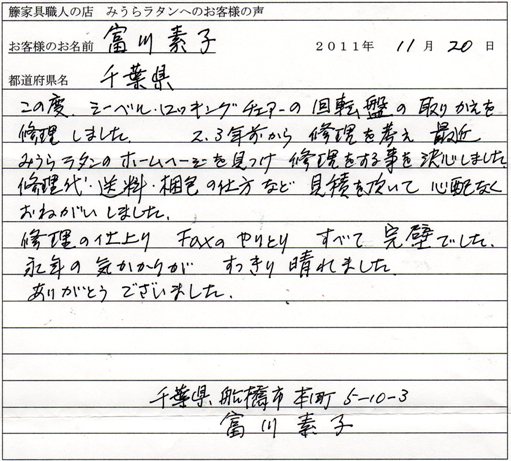 籐家具職人の店　みうらラタンへのお客様の声
お客様のお名前　富川素子　2011年 11月 20日
都道府県名　千葉県
この度、シーベル・ロッキングチェアーの回転盤の取りかえを
修理しました。　2.3年前から 修理を考え 最近
みうらラタンのホームページを見つけ 修理をする事を決心しました
修理代・送料・梱包の仕方など 見積を頂いて 心配なく
おねがいしました。
修理の仕上り Faxのやりとり すべて 完璧でした。
永年の気がかりが すっきり 晴れました。
ありがとうございました。
千葉県船橋市本町 5-10-3
富川素子